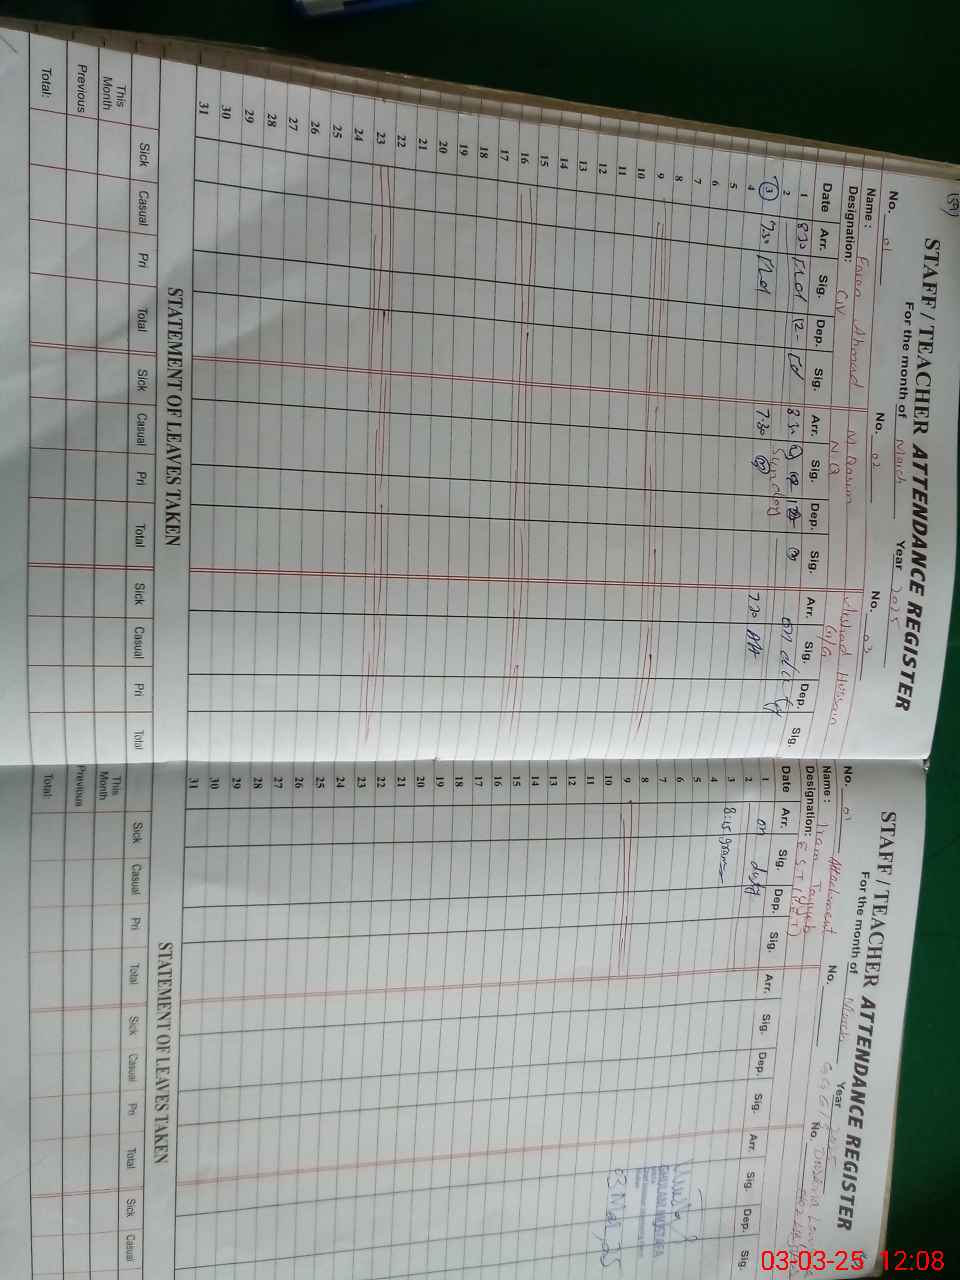 (59)
STAFF / TEACHER ATTENDANCE REGISTER
For the month of March Year 2025
No. 01 No. 02 No. 03
Name: Faran Ahmad M. Qasim Hussain
Designation: N.Q
Date Arr. Sig. Dep. Sig. Arr. Sig. Dep. Sig. Arr. Sig. Dep. Sig.
1 8:30 12- 8:30 on duty
2 Sunday
3 7:30 7:30 7:30
4
5
6
7
8
9
10
11
12
13
14
15
16
17
18
19
20
21
22
23
24
25
26
27
28
29
30
31
STATEMENT OF LEAVES TAKEN
Sick Casual Pri Total Sick Casual Pri Total Sick Casual Pri Total
This Month
Previous
Total:
STAFF / TEACHER ATTENDANCE REGISTER
For the month of March Year
No. 01 Attachment No. No.
Name: Iram
Designation: EST
Date Arr. Sig. Dep. Sig. Arr. Sig. Dep. Sig. Arr. Sig. Dep. Sig.
1 on duty
2
3 8:15
4
5
6
7
8
9
10
11
12
13
14
15
16
17
18
19
20
21
22
23
24
25
26
27
28
29
30
31
03 Mar, 25
STATEMENT OF LEAVES TAKEN
Sick Casual Pri Total Sick Casual Pri Total Sick Casual
This Month
Previous
Total:
03-03-25 12:08